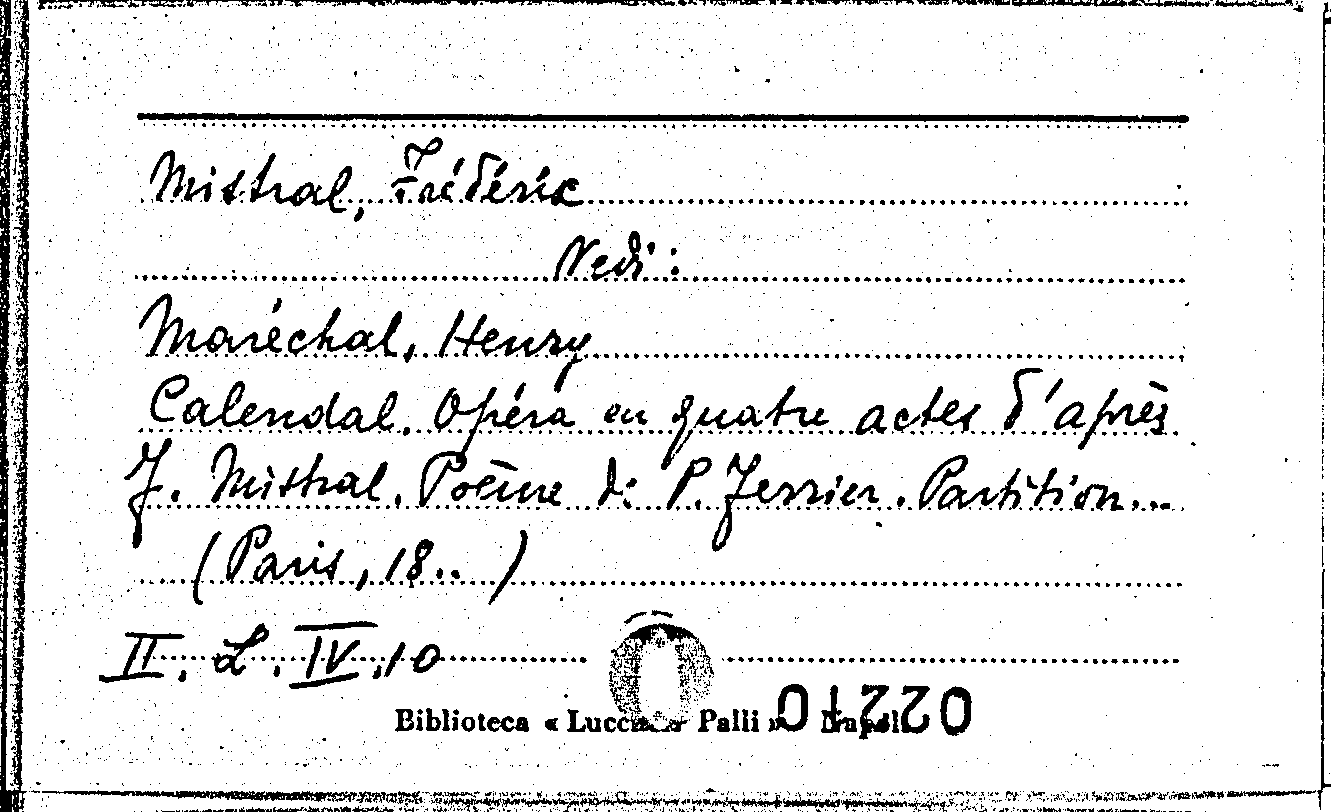 Mistral, Frédéric
Vedi:
Maréchal, Henry
Calendal. Opéra en quatre actes d'après
F. Mistral. Poème de P. Ferrier. Partition...
(Paris, 18.. )
II. L. IV. 10
Biblioteca « Lucchesi Palli » Napoli